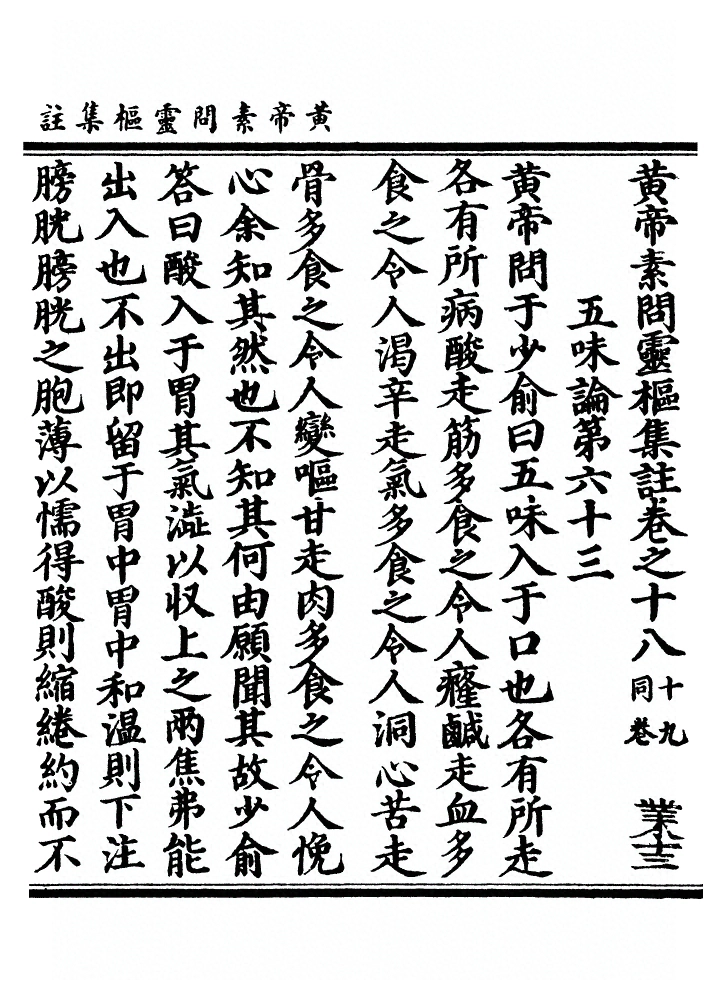 黄帝素問靈樞集註
黄帝素問靈樞集註卷之十八 十九同卷 業十三
五味論第六十三
黄帝問于少俞曰五味入于口也各有所走
各有所病酸走筋多食之令人癃鹹走血多
食之令人渴辛走氣多食之令人洞心苦走
骨多食之令人變嘔甘走肉多食之令人悗
心余知其然也不知其何由願聞其故少俞
答曰酸入于胃其氣澁以収上之兩焦弗能
出入也不出即留于胃中胃中和温則下注
膀胱膀胱之胞薄以懦得酸則縮綣約而不